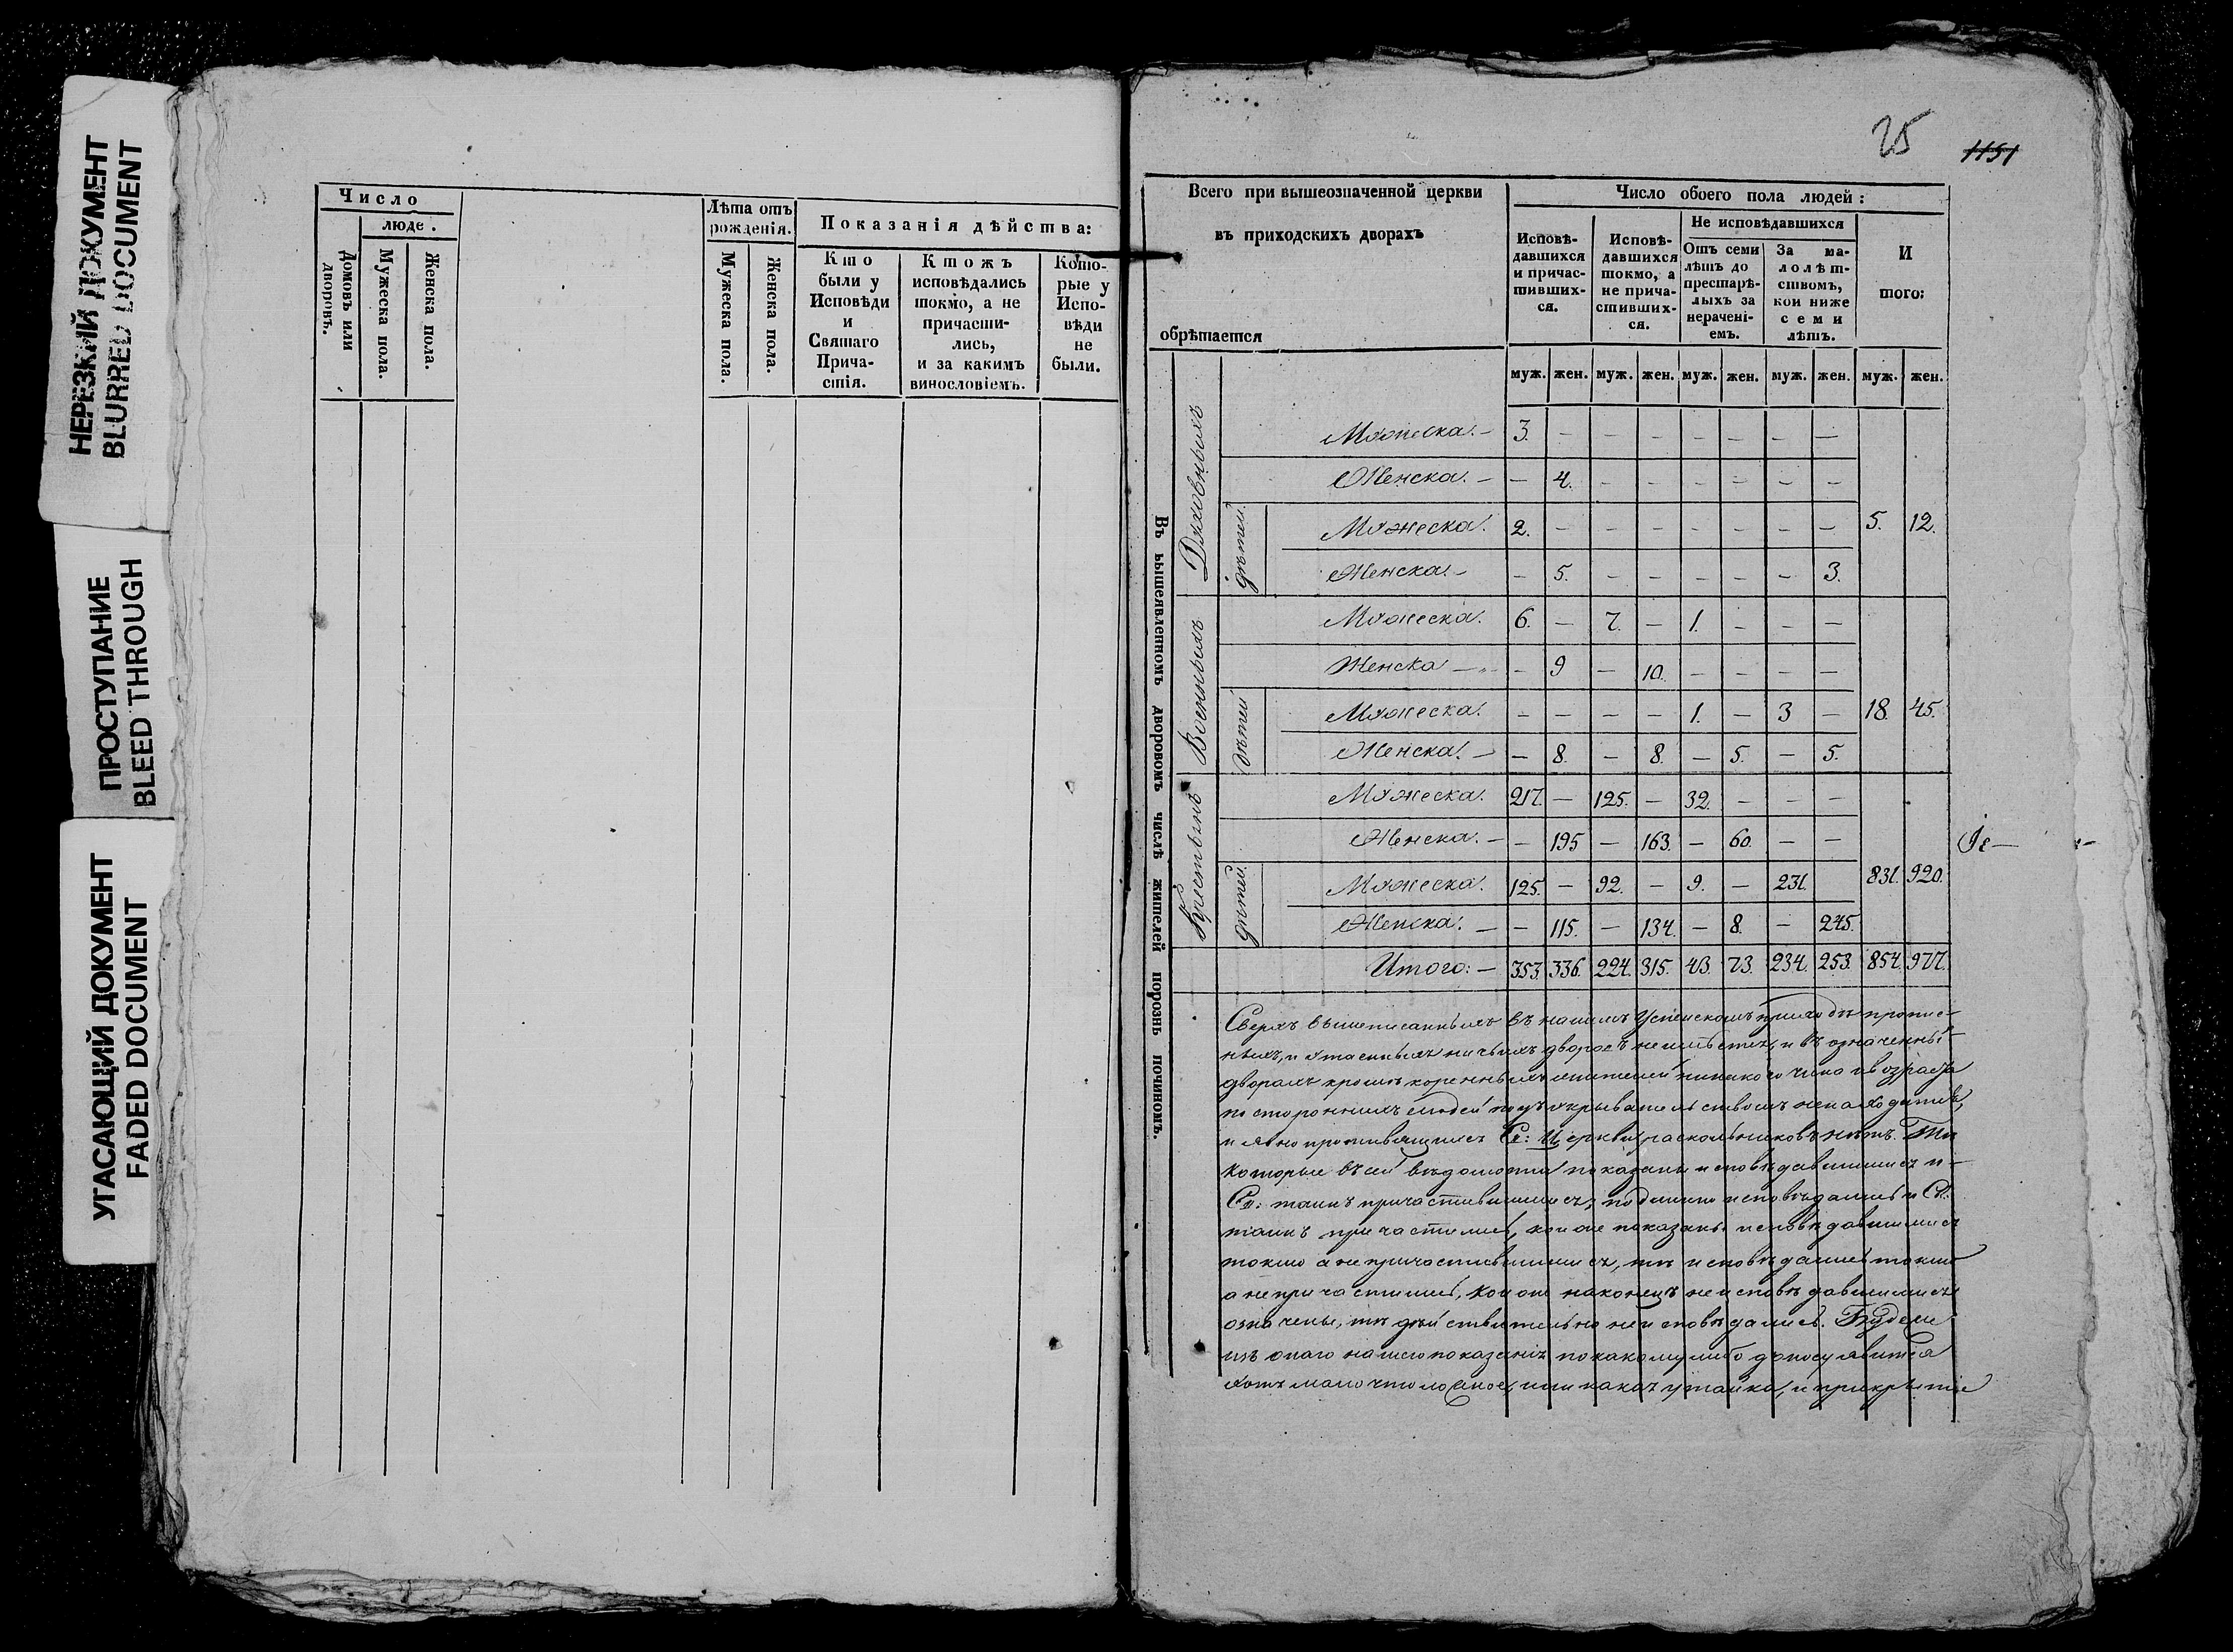 НЕРЕЗКИЙ ДОКУМЕНТ
BLURRED DOCUMENT
ПРОСТУПАНИЕ
BLEED THROUGH
УГАСАЮЩИЙ ДОКУМЕНТ
FADED DOCUMENT
Число
люде .
Домовъ или дворовъ.
Мужеска пола.
Женска пола.
Лѣта отъ рожденія.
Мужеска пола.
Женска пола.
Показанія дѣйства:
Кто были у Исповѣди и Святаго Прича-стія.
Ктожъ исповѣдались токмо, а не причасти-лись, и за какимъ винословіемъ.
Кото-рые у Испо-вѣди не были.
25
1151
Всего при вышеозначенной церкви
въ приходскихъ дворахъ
обрѣтается
Число обоего пола людей:
Исповѣ-давшихся и причас-тивших-ся.
Исповѣ-давшихся токмо, а не прича-стивших-ся.
Не исповѣдавшихся
Отъ семи лѣтъ до престарѣ-лыхъ за нерачені-емъ.
За ма-лолѣт-ствомъ, кои ниже семи лѣтъ.
И того:
муж. жен. муж. жен. муж. жен. муж. жен. муж. жен.
Въ вышеявленномъ дворовомъ числѣ жителей порознь починомъ.
Духовныхъ
Мужеска. — 3. — — — — — — —
Женска. — — 4. — — — — — —
дѣтей
Мужеска. 2. — — — — — — — 5. 12.
Женска. — — 5. — — — — — 3.
Военныхъ
Мужеска. 6. — 7. — 1. — — —
Женска — — 9 — 10. — — — —
дѣтей
Мужеска. — — — — 1. — 3 — 18. 45.
Женска. — — 8. — 8. — 5. — 5.
Крестьянъ
Мужеска. 217. — 125. — 32. — — —
Женска. — — 195 — 163. — 60. — —
дѣтей
Мужеска. 125. — 92. — 9. — 231. 831. 920.
Женска. — — 115. — 134. — 8. — 245.
Итого: — 353. 336. 224. 315. 43. 73. 234. 253. 854. 977.
Сверхъ вышеписанныхъ въ нашемъ Успенскомъ приходѣ пропис-
ныхъ, и утаенныхъ ничьихъ дворовъ неимѣется, и въ означенны-
дворахъ кромѣ коренныхъ жителей никакого чина и возраста
постороннихъ людей подъ укрывательствомъ ненаходится,
и явно противящихся Св: Церкви раскольниковъ нѣтъ. Тѣ
которые въ сей вѣдомости показаны исповѣдавшимися и-
Св: таинъ причастившимися, подлинно исповѣдались и Св:
таинъ причастились, кои же показаны исповѣдавшимися
токмо а не причастившимися, тѣ исповѣдались токмо
а не причастились, кои же наконецъ не исповѣдавшимися
означены, тѣ дѣйствительно не исповѣдались. Буде же
изъ онаго нашего показанія по какому либо доносу явится
хоть мало что ложное, или какая утайка, и прикрытіе